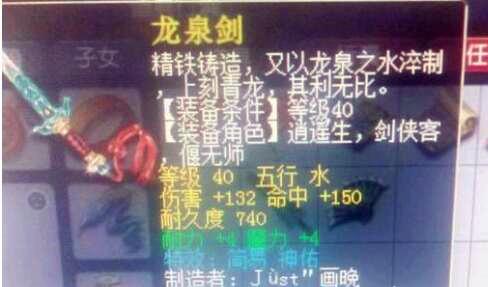 龙泉剑
子女
任
精铁铸造，又以龙泉之水淬制
，上刻青龙，其利无比。
【装备条件】等级40
【装备角色】逍遥生，剑侠客
，偃无师
等级 40 五行 水
伤害 +132 命中 +150
耐久度 740
耐力 +4 魔力 +4
特效：简易 神佑
制造者：Jùst”画晚